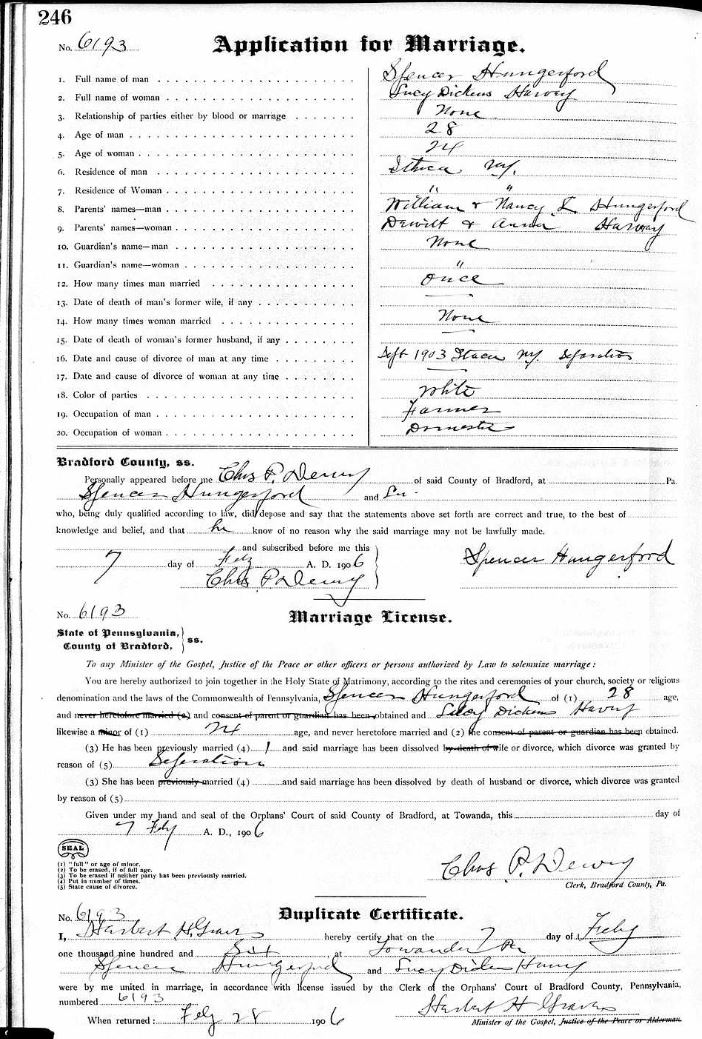 246
No. 6193 Application for Marriage.
1. Full name of man Spencer Hungerford
2. Full name of woman Lucy Dickens Harvey
3. Relationship of parties either by blood or marriage None
4. Age of man 28
5. Age of woman 24
6. Residence of man Ithica NY.
7. Residence of Woman " "
8. Parents' names—man William & Nancy L Hungerford
9. Parents' names—woman Dewitt & Anna Harvey
10. Guardian's name—man None
11. Guardian's name—woman "
12. How many times man married Once
13. Date of death of man's former wife, if any
14. How many times woman married None
15. Date of death of woman's former husband, if any
16. Date and cause of divorce of man at any time Sept 1903 NY.
17. Date and cause of divorce of woman at any time
18. Color of parties White
19. Occupation of man Farmer
20. Occupation of woman Domestic
Bradford County, ss.
Personally appeared before me Chas P. Dewey of said County of Bradford, at Pa.
Spencer Hungerford and
who, being duly qualified according to law, did depose and say that the statements above set forth are correct and true, to the best of
knowledge and belief, and that he know of no reason why the said marriage may not be lawfully made.
and subscribed before me this
7 day of Feby A. D. 1906 Spencer Hungerford
Chas P Dewey
No. 6193 Marriage License.
State of Pennsylvania,
County of Bradford, ss.
To any Minister of the Gospel, Justice of the Peace or other officers or persons authorized by Law to solemnize marriage:
You are hereby authorized to join together in the Holy State of Matrimony, according to the rites and ceremonies of your church, society or religious
denomination and the laws of the Commonwealth of Pennsylvania, Spencer Hungerford of (1) 28 age,
and never heretofore married (2) and consent of parent or guardian has been obtained and Dickens Harvey
likewise a minor of (1) 24 age, and never heretofore married and (2) the consent of parent or guardian has been obtained.
(3) He has been previously married (4) 1 and said marriage has been dissolved by death of wife or divorce, which divorce was granted by
reason of (5) Seperation
(3) She has been previously married (4) and said marriage has been dissolved by death of husband or divorce, which divorce was granted
by reason of (5)
Given under my hand and seal of the Orphans' Court of said County of Bradford, at Towanda, this day of
7 Feby A. D., 1906
SEAL
(1) "full" or age of minor.
(2) To be erased, if of full age.
(3) To be erased if neither party has been previously married.
(4) Put in number of times.
(5) State cause of divorce.
Chas P. Dewey
Clerk, Bradford County, Pa.
No. 6193 Duplicate Certificate.
I, Herbert H. Graves hereby certify that on the 7 day of Feby
one thousand nine hundred and Six at Towanda Pa
Spencer Hungerford and Lucy Harvey
were by me united in marriage, in accordance with license issued by the Clerk of the Orphans' Court of Bradford County, Pennsylvania,
numbered 6193 Herbert H Graves
When returned: Feby 28 1906 Minister of the Gospel, Justice of the Peace or Alderman.